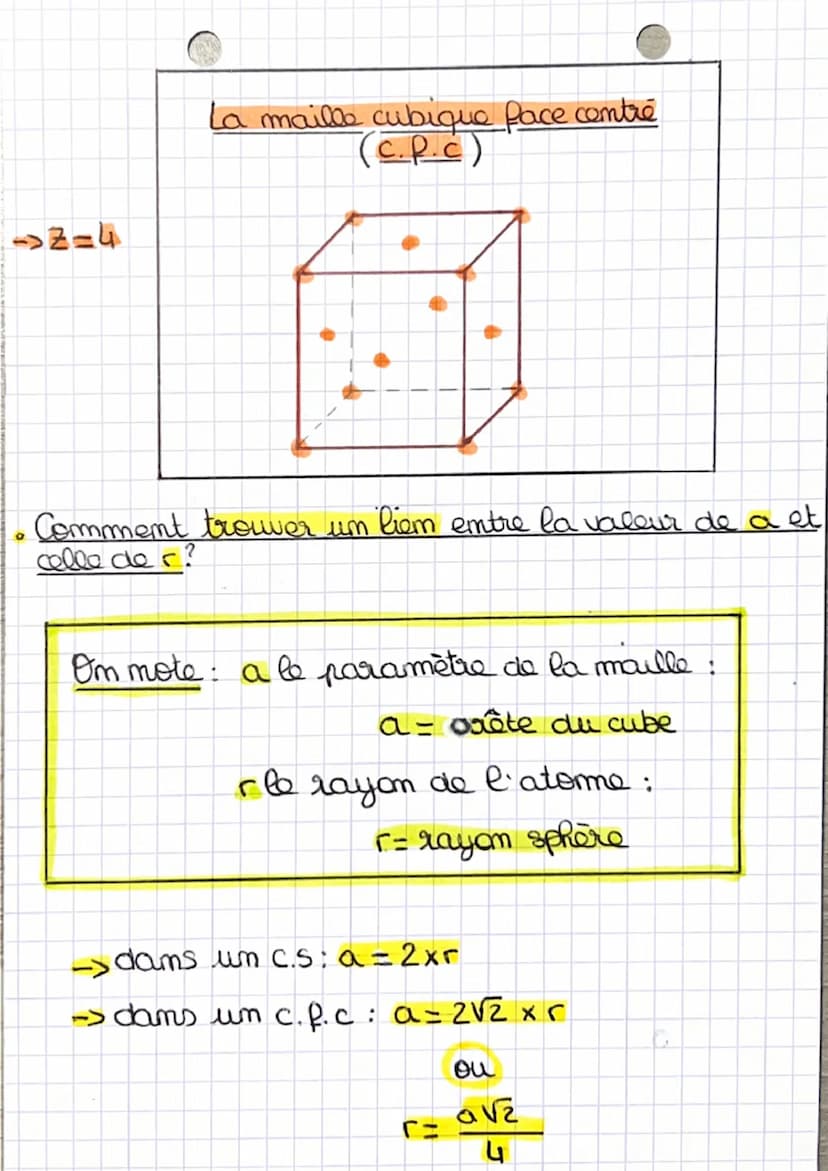 La maille cubique face centré
(c.f.c)
→ Z = 4
• Comment trouver un lien entre la valeur de a et
celle de r ?
On note : a le paramètre de la maille :
a = arête du cube
r le rayon de l'atome :
r = rayon sphère
→ dans un c.s : a = 2 × r
→ dans un c.f.c : a = 2√2 × r
ou
r = a√2 / 4